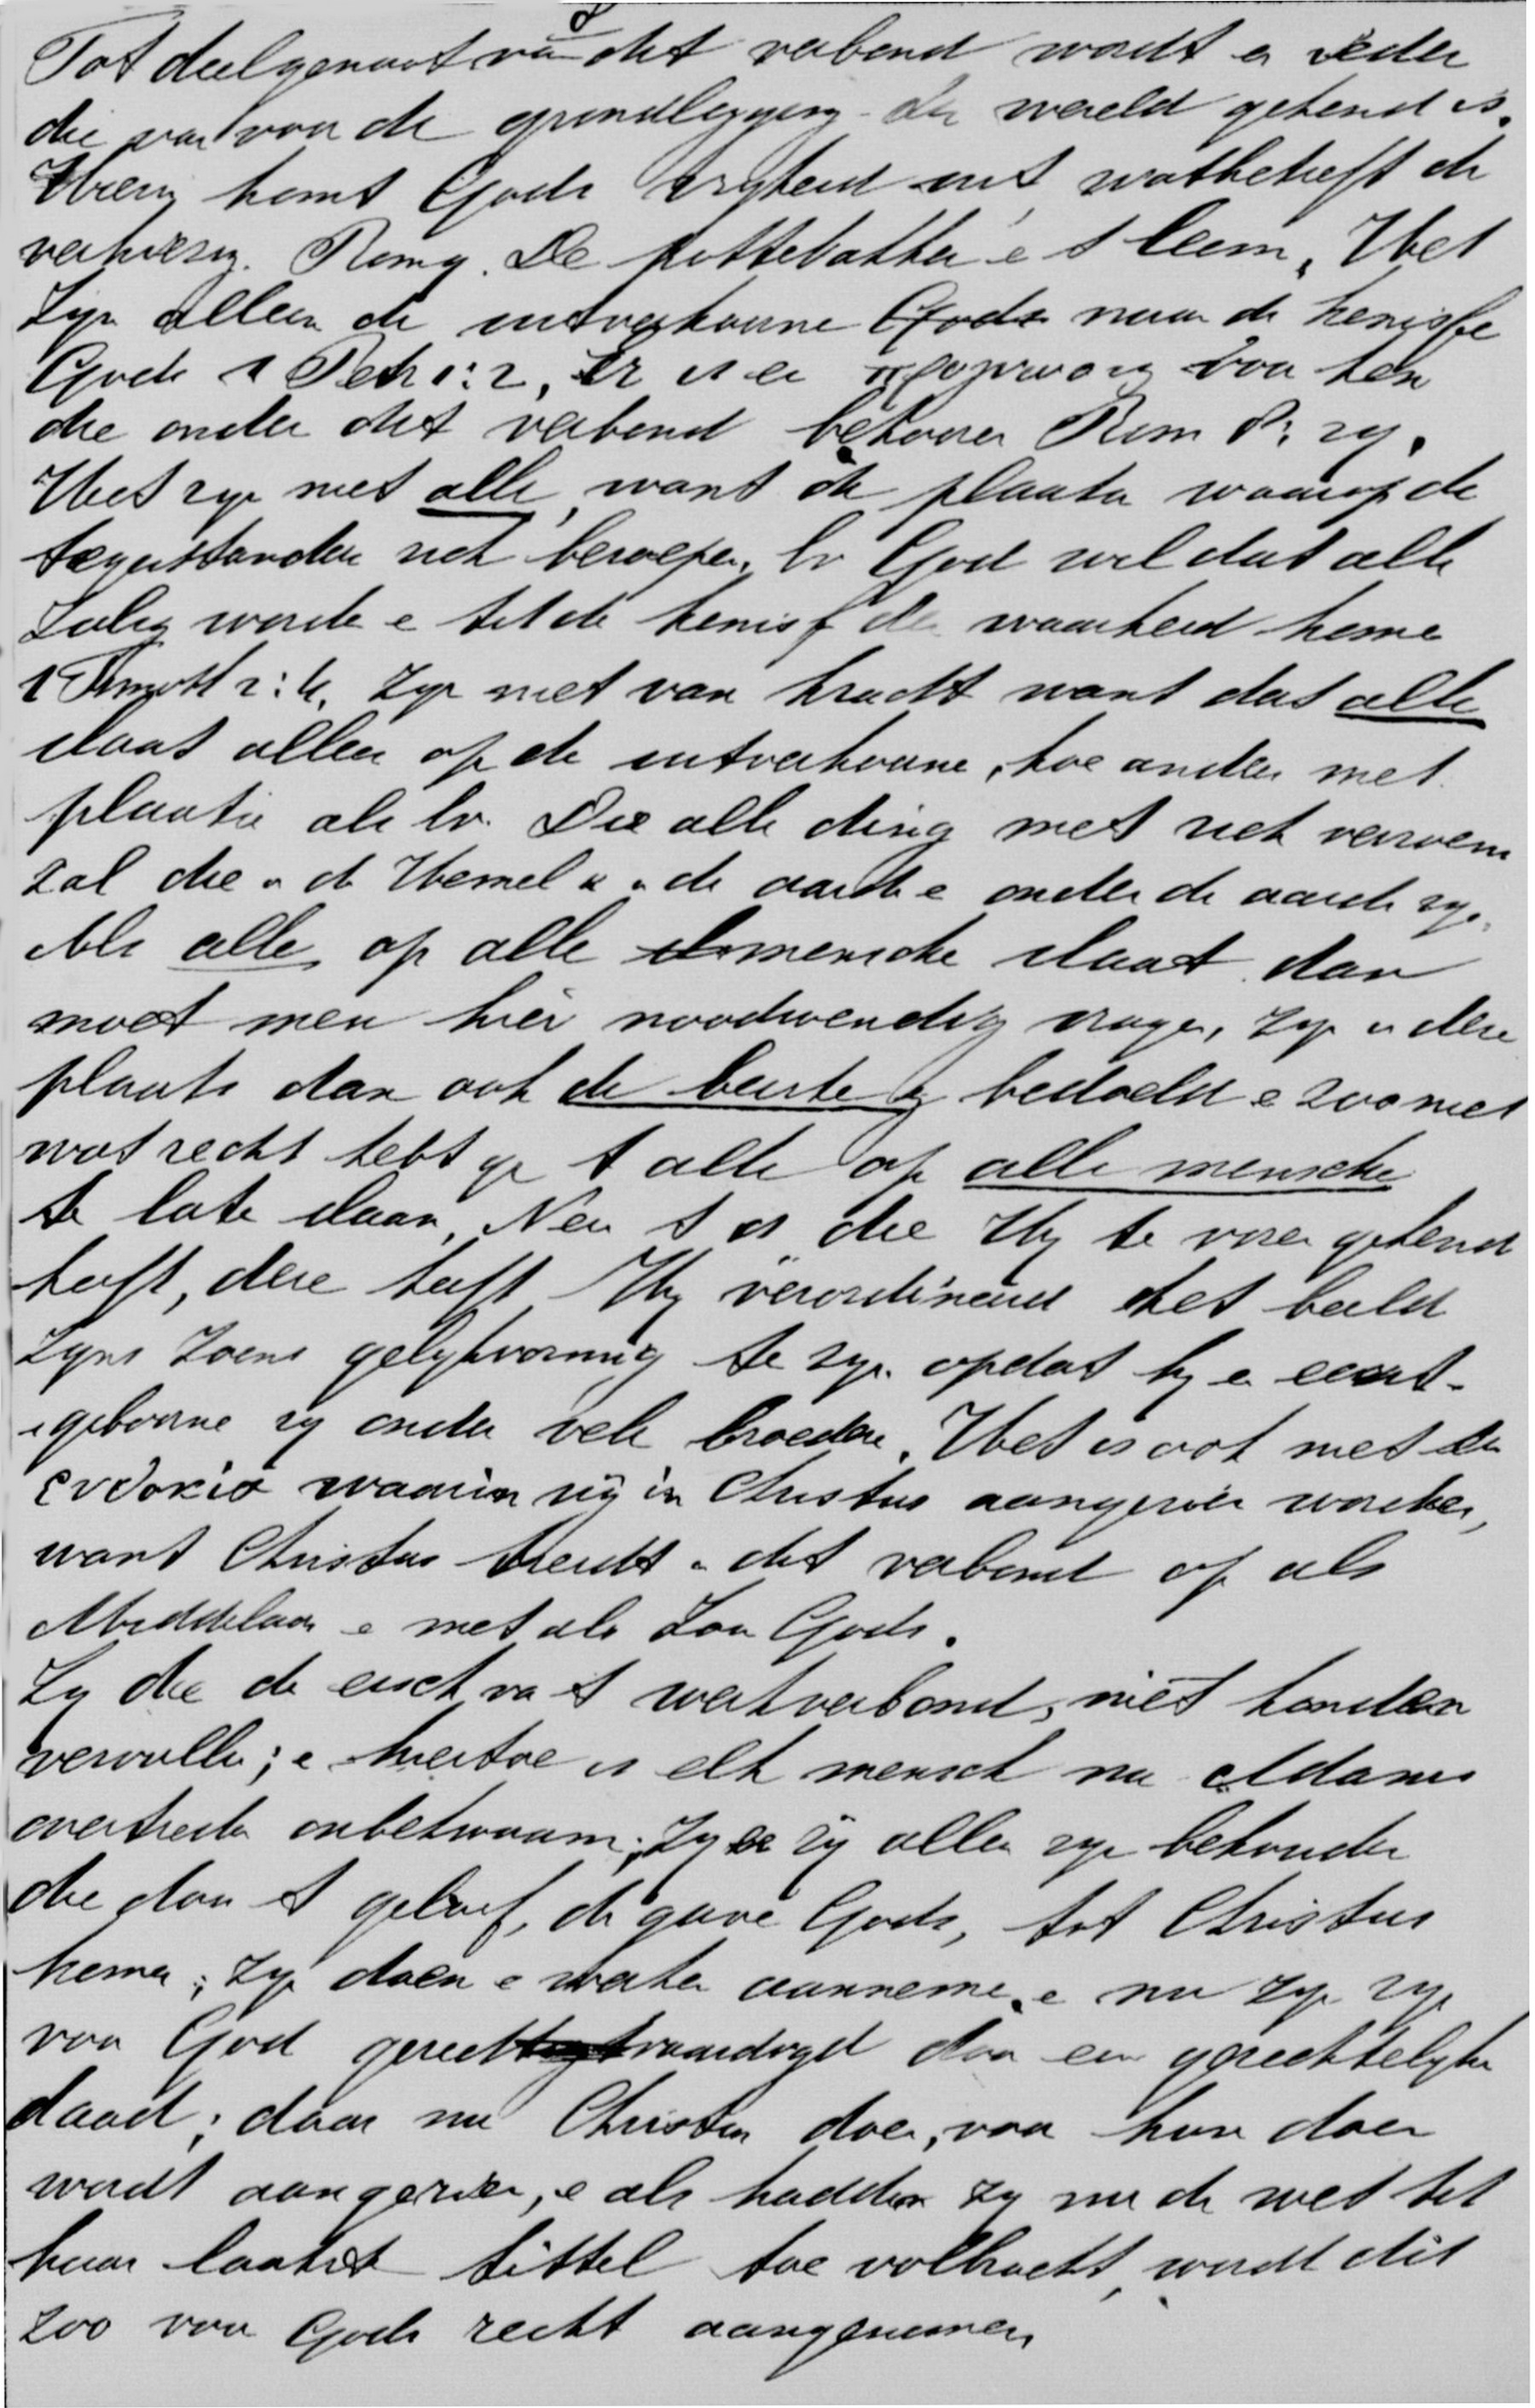 Tot deelgenoot va dit verbond wordt er ieder
die van voor de grondlegging der wereld gekend is.
Hierin komt Gods vryheid uit, wat betreft de
verkiezing. Rom 9. De pottebakker e t leem. Het
zyn alleen de uitverkoorne Gods naar de kennisse
Gods 1 Petr 1:2, Er is er voor hen
die onder dit verbond behooren Rom 8:29.
Het zyn niet alle, want de plaatse waarop de
tegenstanders zich beroepen, bv God wil dat alle
zalig worde e tot de kennis der waarheid kome
1 Timoth 2:4. zyn niet van kracht want dat alle
slaat alleen op de uitverkoorne, hoe anders met
plaatse als bv. Die alle ding met zich verzoene
zal die i de Hemel e i de aarde e onder de aarde zyn.
Als alle op alle menschen slaat dan
moet men hier noodwendig vragen, zyn i deze
plaats dan ook de beesten bedoeld e zoo niet
wat recht hebt ge t alle op alle mensche
te late slaan, Nee t is die Hy te vore gekend
heeft, deze heeft Hy verordineerd het beeld
zyns Zoons gelykvormig te zyn opdat hy e eerst-
geboorne zy onder vele broedere. Het is ook met de
εvδoκια waarin zij in Christus aangezien worden,
want Christus treedt i dit verbond op als
Middelaar e niet als Zoon Gods.
Zy die de eisch va t werkverbond, niet konden
vervullen; e hiertoe is elk mensch na Adams
overtreden onbekwaam; Zy zy allen zyn behouden
die door t geloof, de gave Gods, tot Christus
komen; Zyn doen e werken aannemen e nu zyn zy
voor God gerechtvaardigd door een gerechtelyke
daad; daar nu Christus doen, voor hun doen
wordt aangezien, e als hadden zy nu de wet tot
haar laatst tittel toe volbracht, wordt dit
zoo voor Gods recht aangenomen